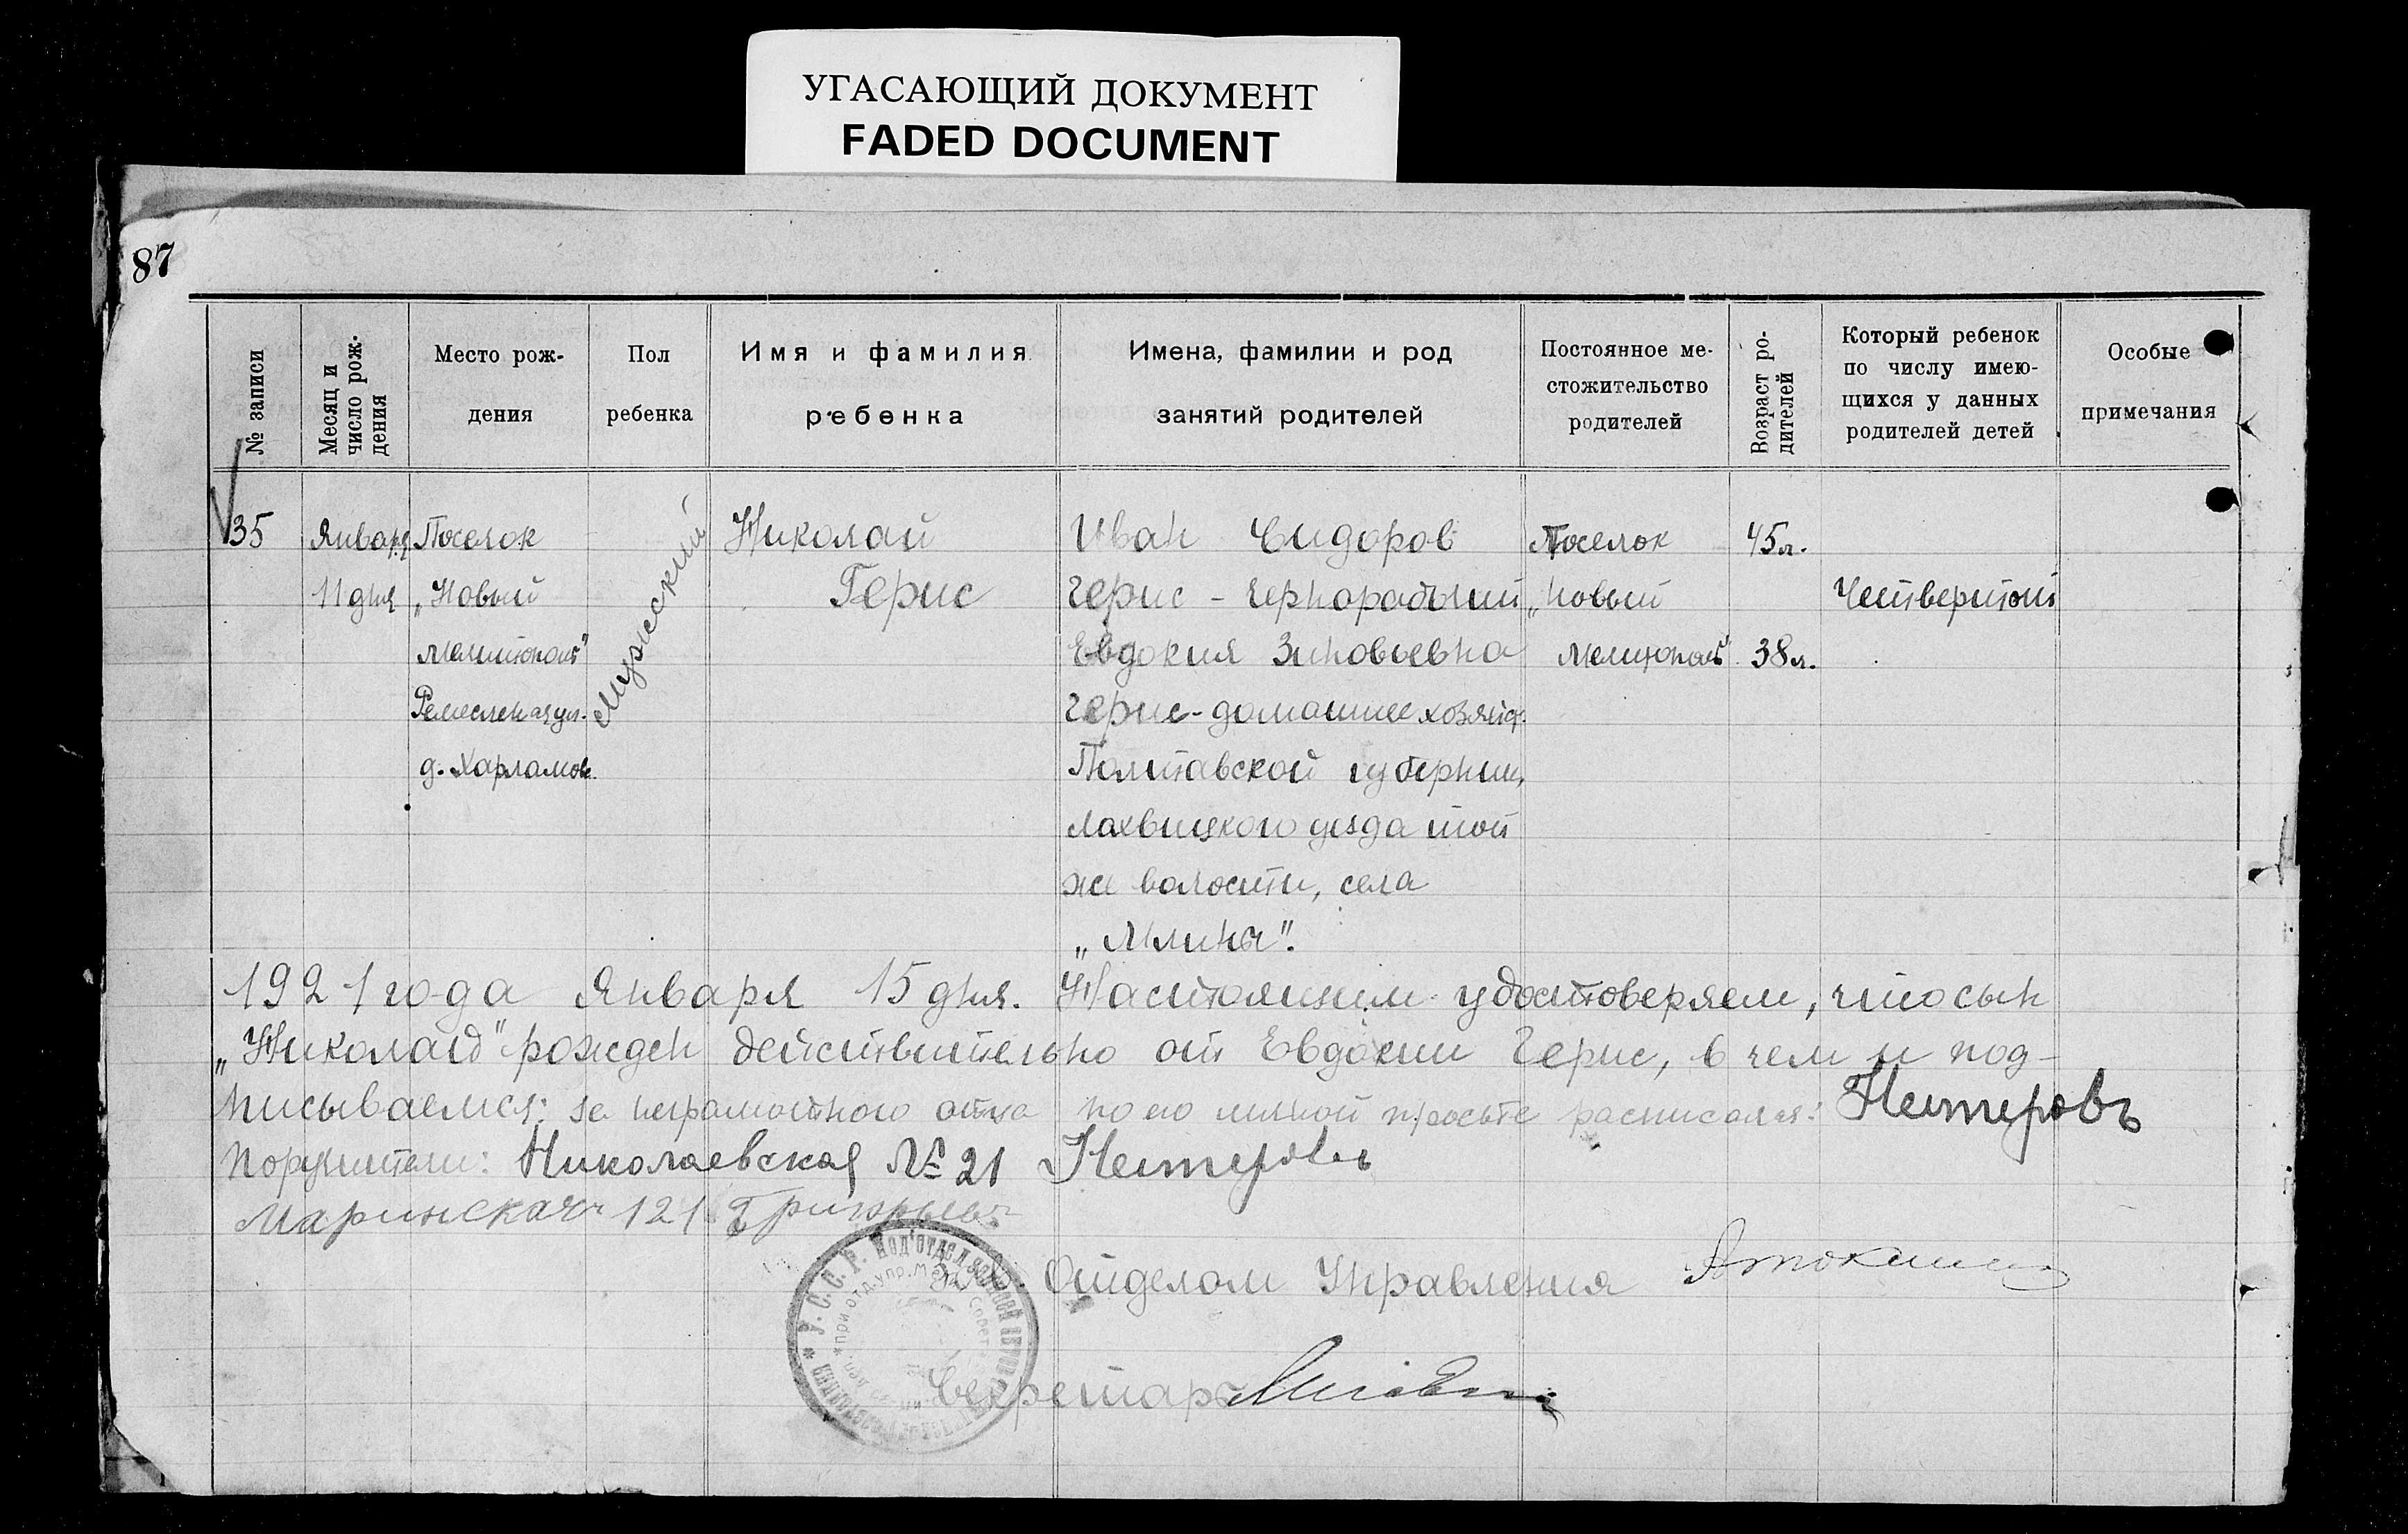 УГАСАЮЩИЙ ДОКУМЕНТ
FADED DOCUMENT
87
№ записи
Месяц и
число рож-
дения
Место рож-
дения
Пол
ребенка
Имя и фамилия
ребенка
Имена, фамилии и род
занятий родителей
Постоянное ме-
стожительство
родителей
Возраст ро-
дителей
Который ребенок
по числу имею-
щихся у данных
родителей детей
Особые
примечания
35
Января
11 дня
Поселок
„Новый
Мелитополь"
Ремеслен ая ул.
д. Харламов.
Мужский
Николай
Герис
Иван Сидоров
Герис - чернорабочий
Евдокия Зиновьевна
Герис - домашнее хозяйст.
Полтавской губернии,
Лохвицкого уезда той
же волости, села
„Млины".
Поселок
„Новый
Мелитополь"
45 л.
38 л.
Четвертый
1921 года Января 15 дня. Настоящим удостоверяем, что сын
„Николай" рожден действительно от Евдокии Герис, в чем и под-
писываемся: за неграмотного отца по его личной просьбе расписался: Нестеровъ
Поручители: Николаевская № 21 Нестеровъ
Маринская 121 Григорьев
Зав. Отделом Управления
Секретарь
У. С. С. Р. Под'отдел записей
при отд. упр.